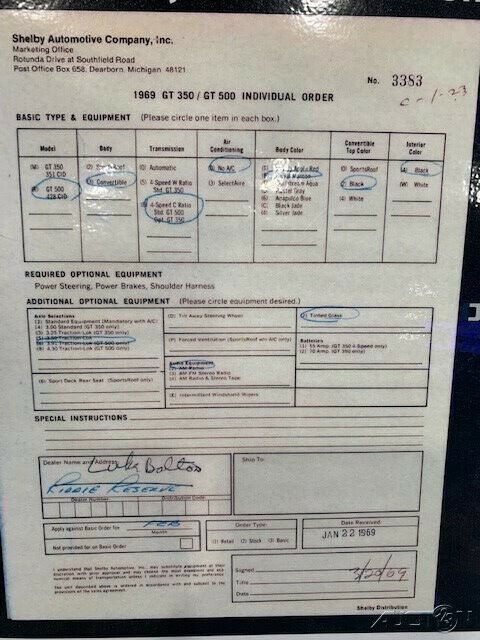 Shelby Automotive Company, Inc.
Marketing Office
Rotunda Drive at Southfield Road
Post Office Box 658, Dearborn, Michigan 48121
No. 3383
1969 GT 350 / GT 500 INDIVIDUAL ORDER
BASIC TYPE & EQUIPMENT (Please circle one item in each box.)
Model
(M) GT 350
351 CID
GT 500
428 CID
Body
(2) SportsRoof
Convertible
Transmission
(0) Automatic
(5) 4-Speed W Ratio
Std. GT 350
4-Speed C Ratio
Std. GT 500
Opt. GT 350
Air
Conditioning
No A/C
(3) SelectAire
Body Color
Red
Aqua
Pastel Gray
(6) Acapulco Blue
(C) Black Jade
(4) Silver Jade
Convertible
Top Color
(0) SportsRoof
Black
(4) White
Interior
Color
Black
(W) White
REQUIRED OPTIONAL EQUIPMENT
Power Steering, Power Brakes, Shoulder Harness
ADDITIONAL OPTIONAL EQUIPMENT (Please circle equipment desired.)
Axle Selections
(2) Standard Equipment (Mandatory with A/C)
(4) 3.00 Standard (GT 350 only)
(3) 3.25 Traction-Lok (GT 350 only)
3.50 Traction-Lok
3.91 Traction-Lok (GT 500 only)
(8) 4.30 Traction-Lok (GT 500 only)
(6) Sport Deck Rear Seat (SportsRoof only)
(D) Tilt Away Steering Wheel
(P) Forced Ventilation (SportsRoof w/o A/C only)
Audio Equipment
AM Radio
(3) AM-FM Stereo Radio
(4) AM Radio & Stereo Tape
(E) Intermittent Windshield Wipers
Tinted Glass
Batteries
(1) 55 Amp. (GT 350 4-Speed only)
(2) 70 Amp. (GT 350 only)
SPECIAL INSTRUCTIONS
Dealer Name and Address
Reserve
Dealer Number
Distribution Code
Ship To:
Apply against Basic Order for
FEB
Month
Not provided for on Basic Order
Order Type:
(1) Retail (2) Stock (3) Basic
Date Received
JAN 22 1969
I understand that Shelby Automotive, Inc. may substitute equipment at their
The unit described above is ordered in accordance with and subject to the
provisions of the sales agreement.
Signed
Title
Date
Shelby Distribution